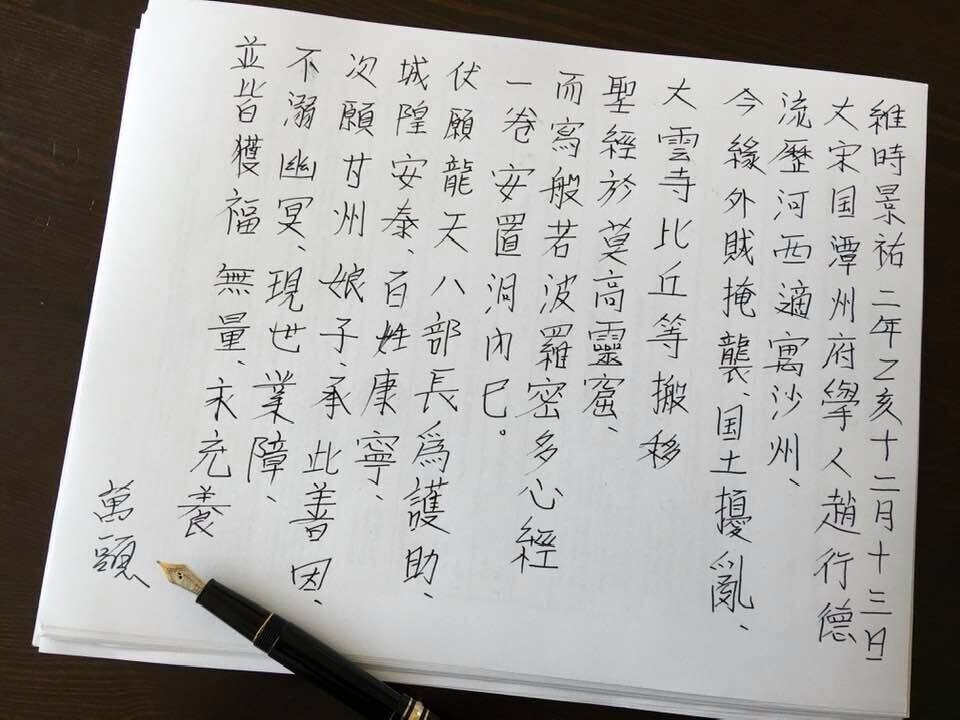 維時景祐二年乙亥十二月十三日
大宋国潭州府學人趙行德
流歷河西適寓沙州、
今緣外賊掩襲、国土擾亂、
大雲寺比丘等搬移
聖經於莫高靈窟、
而寫般若波羅密多心經
一卷安置洞內已。
伏願龍天八部長爲護助、
城隍安泰、百姓康寧、
次願甘州娘子、承此善因、
不溺幽冥、現世業障、
並皆獲福無量、永充養
萬頭